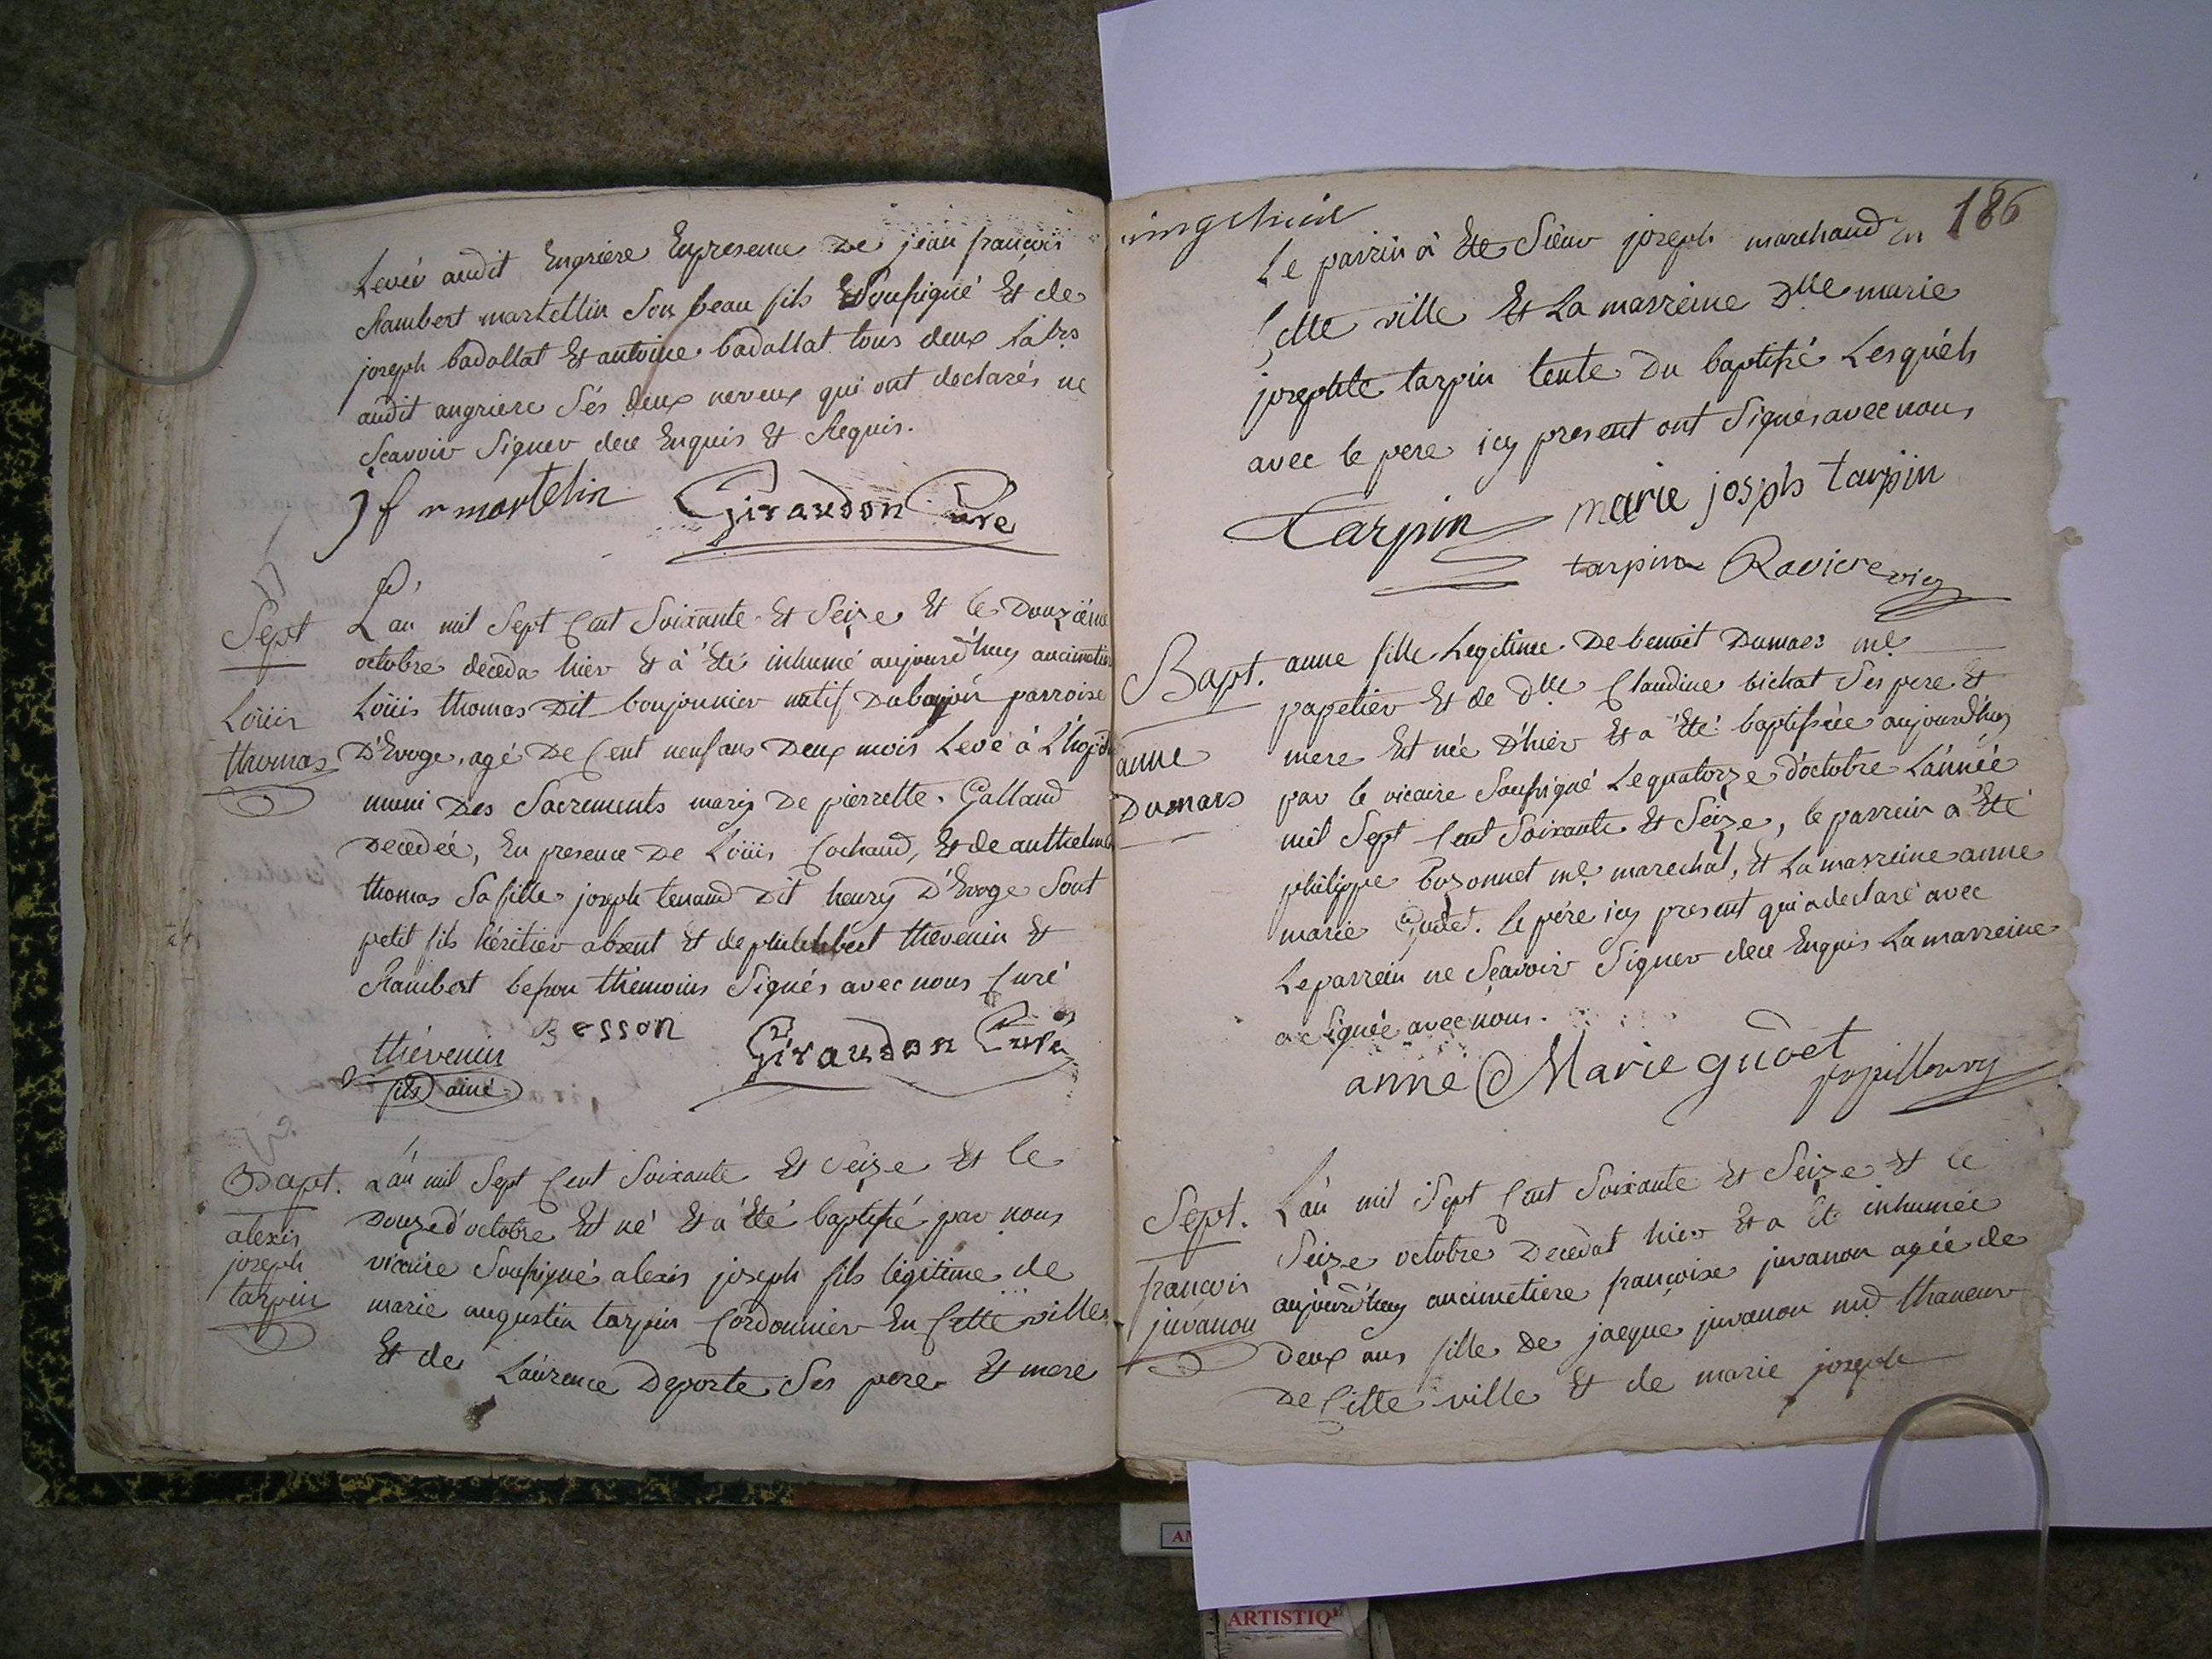 Levéé audit Engriere Enpresence De jean françois
Rambert martellin Son beau fils Soussigné Et de
joseph badollat Et antoine badollat tous deux Labrs
audit angriere Sés deux neveux qui ont declarés ne
Sçavoir Signer dece Enquis Et Requis.
j f r martelin Giraudon Curé
Sept
Loüis
thomas
L'an mil Sept Cent Soixante Et Seize Et le Douzième
octobre deceda hier Et à Eté inhumé aujourd'huy aucimetiere
Loüis thomas Dit boujounier natif parroise
D'Evoge, agé De Cent neuf ans Deux mois Levé à L'hopital
muni Des Sacrements mary De pierrette Galland
Decedéé, En presence De Loüis Cochaud, Et de anthelme
thomas Sa fille joseph tenand Dit henry D'Evoge Sont
petit fils héritier absent Et de philibert thevenin Et
Rambert besson thémoins Signés avec nous Curé
thévenin Besson Giraudon Curé
fils ainé
Bapt.
alexis
joseph
tarpin
L'an mil Sept Cent Soixante Et Seize Et le
Douze d'octobre Est né Et a Eté baptisé par nous
vicaire Soussigné alexis joseph fils légitime de
marie augustin tarpin Cordonnier En Cette ville
Et de Laurence Deporte Ses pere Et mere
186
Le parrin à Ete Sieur joseph marchand En
Cette ville Et La marreine Dlle marie
josephte tarpin tente Du baptisé Lesquels
avec le pere icy present ont Signés avec nous
tarpin marie josph tarpin
tarpin Raviere vic
Bapt.
anne
Dumars
anne fille Legitime De benoit Dumars me
papetier Et de Dlle Claudine bichat Ses pere Et
mere Est née D'hier Et a Eté baptisée aujourd'huy
par le vicaire Soussigné Lequatorze d'octobre L'année
mil Sept Cent Soixante Et Seize, le parrein a Eté
philippe bozonnet me marechal, Et La marreine anne
marie Gudet. le pére icy present qui a declaré avec
Le parrein ne Sçavoir Signer dece Enquis La marreine
a Signée avec nous.
anne Marie gudet papillon vy
Sept.
françois
juvanon
L'an mil Sept Cent Soixante Et Seize Et le
Seize octobre Decedat hier Et a Eté inhumée
aujourd'huy aucimetiere françoise juvanon agée de
Deux ans fille De jacque juvanon md thaneur
De Cette ville Et de marie joseph
ARTISTIQ